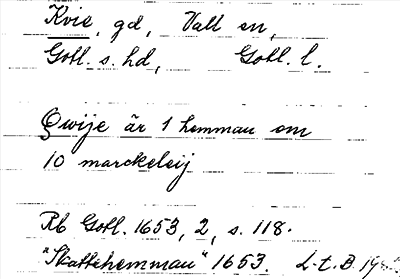 Kvie, gd, Vall sn,
Gotl. s. hd, Gotl. l.
Qwije är 1 hemman om
10 marckeleij
Rb Gotl. 1653, 2, s. 118.
"Skattehemman" 1653. L.t.B.